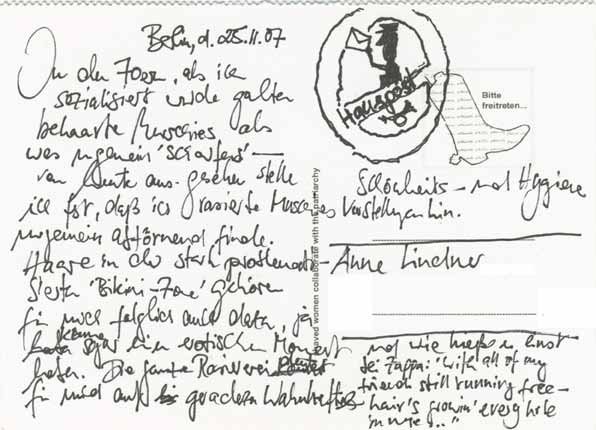 Berlin, d. 25.11.07
In den 70ern, als ich
sozialisiert wurde galten
behaarte Muschies als
was ungemein 'Scharfes' –
von heute aus gesehen stelle
ich fest, daß ich rasierte Muschies
ungemein abtörnend finde.
Haare in der stark problemati-
sierten 'Bikini-Zone' gehören
für mich folglich auch dazu, ja
können sogar ein erotisches Moment
haben. Die ganze Rasiererei
für mich auf geradezu wahnhafte
Schönheits- und Hygiene
Vorstellungen hin.
Anne Lindner
und wie hieß es einst
bei Zappa: 'with all of my
friends still running free –
hair's growin' every hole
in me..."
Hauspost
Bitte
freitreten...
aved women collaborate with the patriarchy